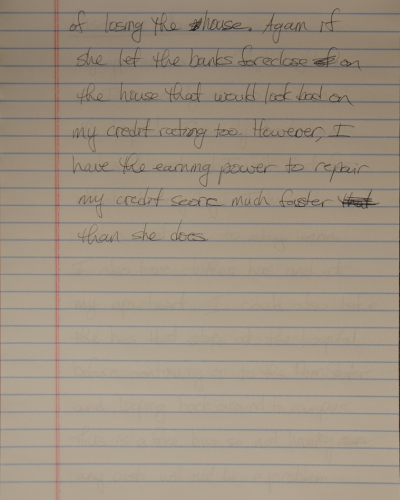 of losing the house. Again if
she let the banks foreclose on
the house that would look bad on
my credit rating too. However, I
have the earning power to repair
my credit score much faster
than she does